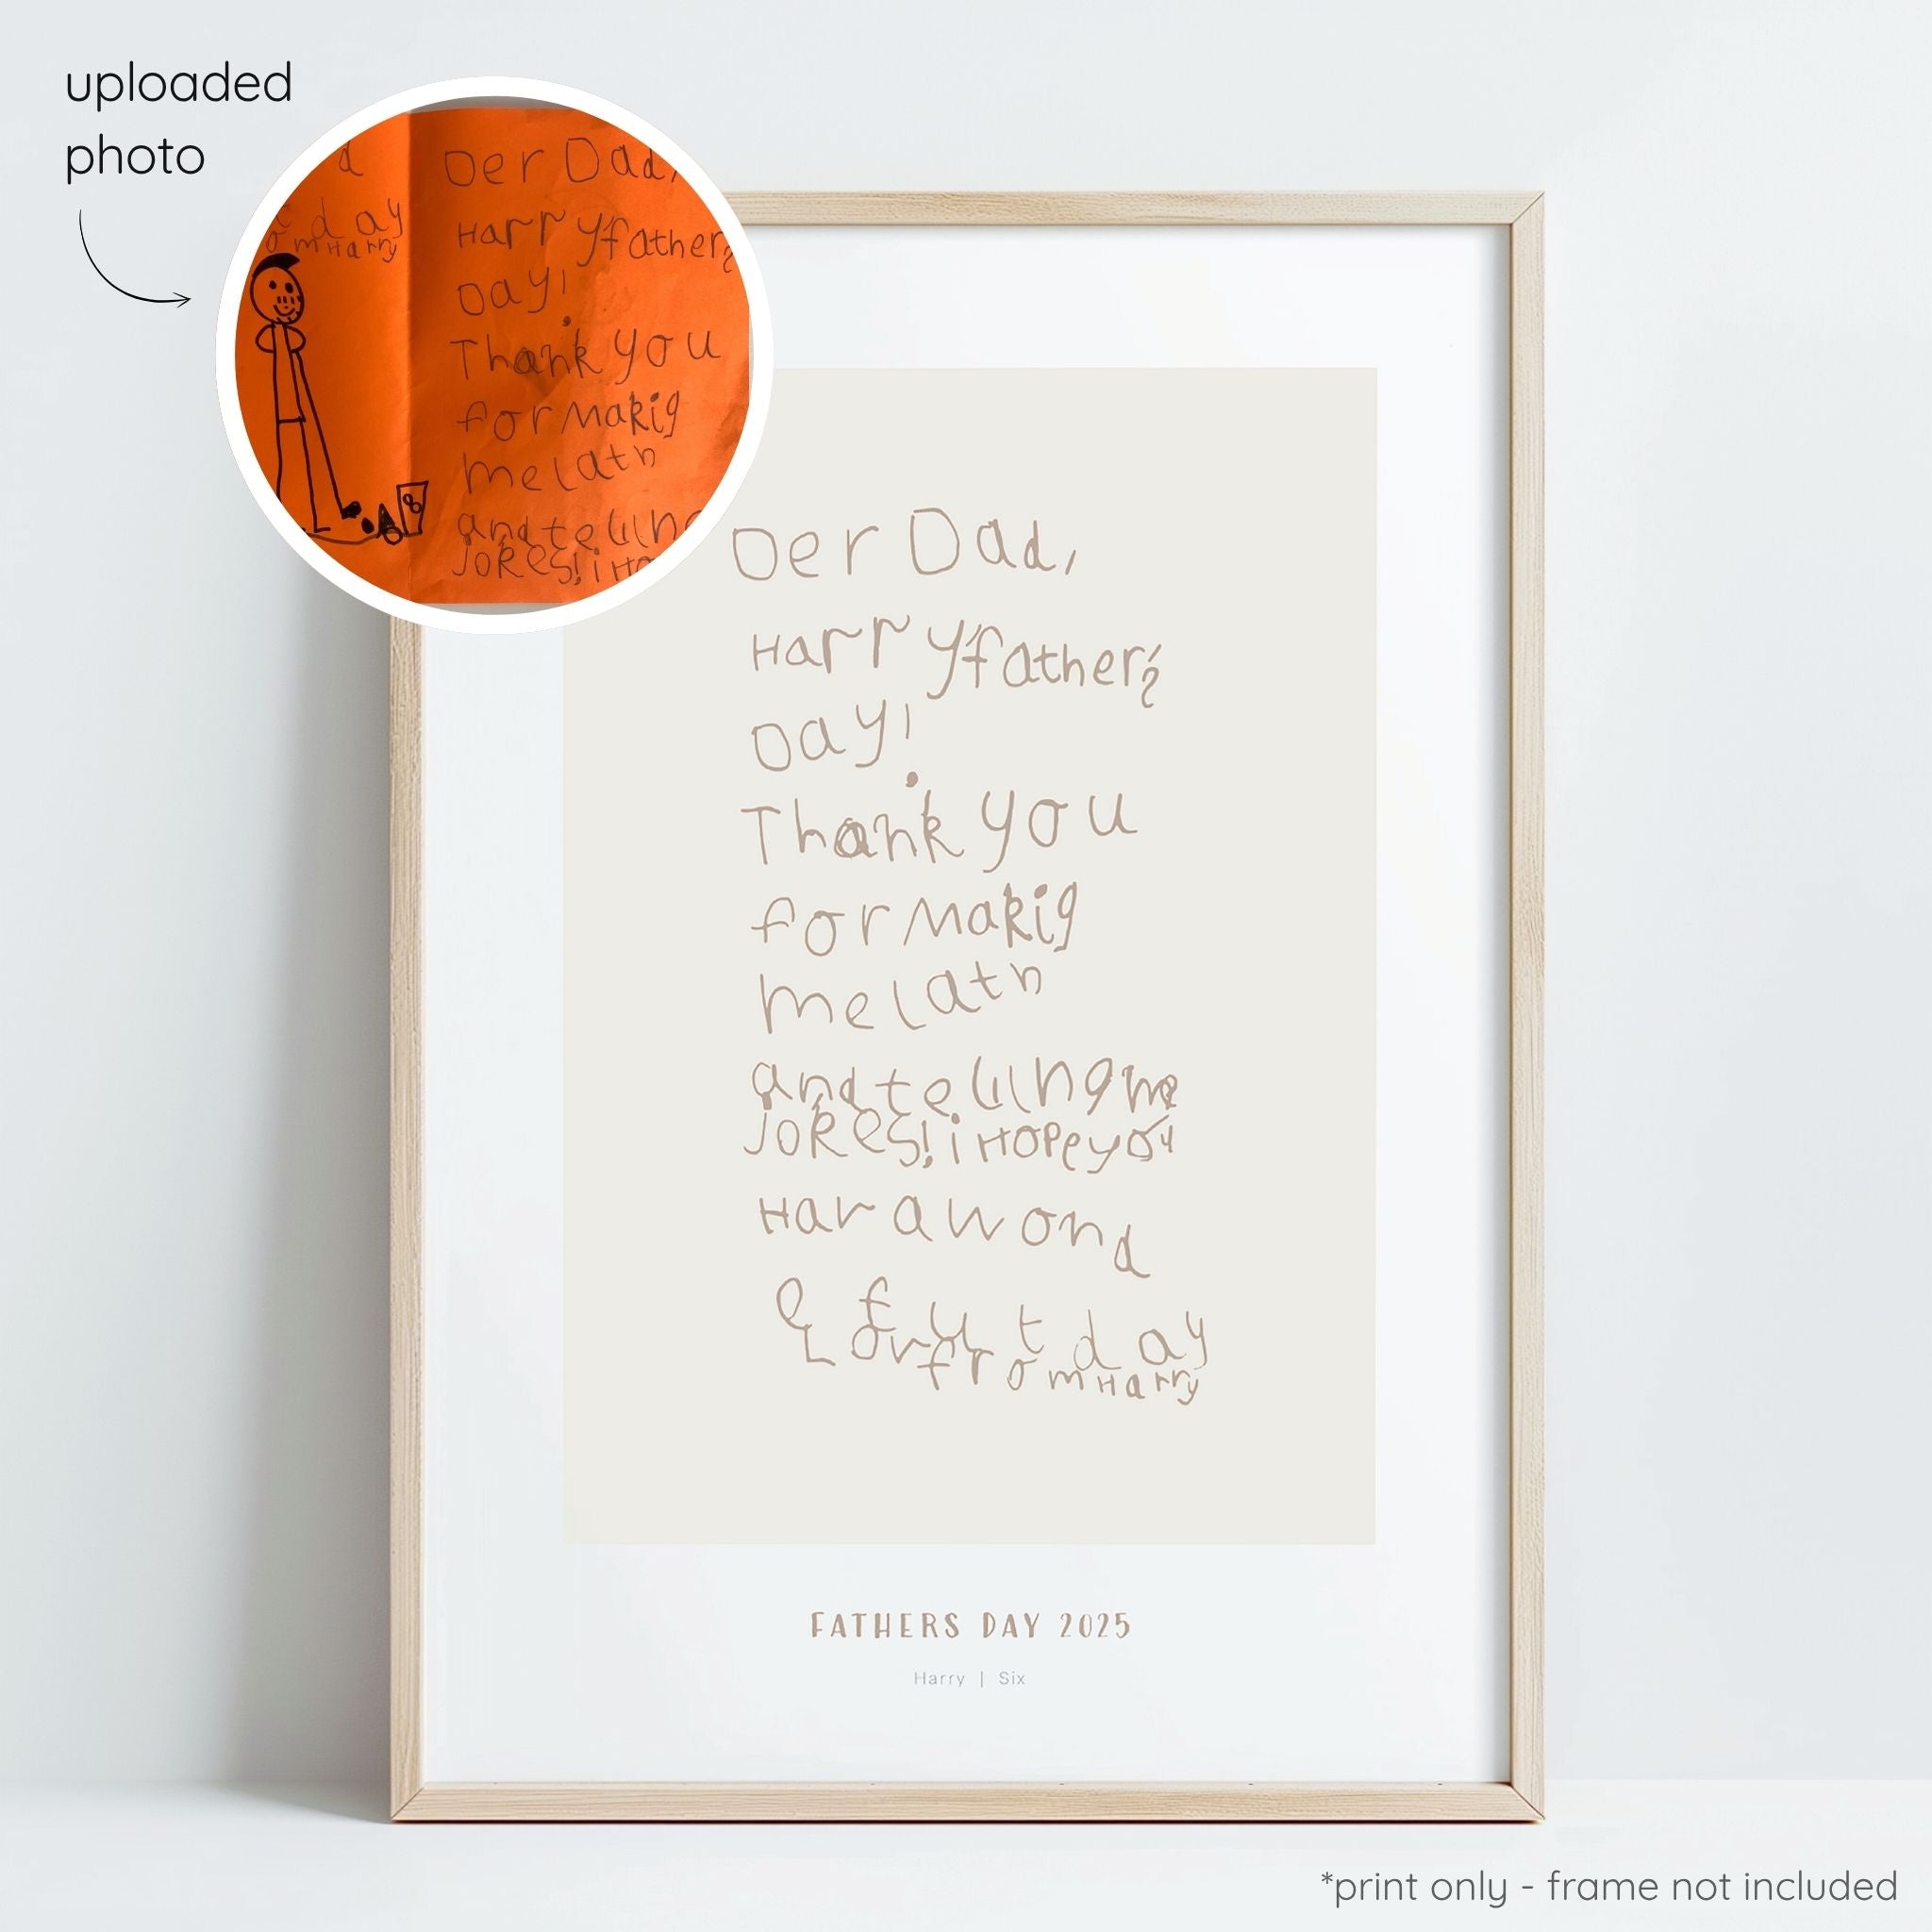 uploaded
photo
d
day
omHarry
Der Dad,
Harryfather's
Day!
Thank you
for Makig
me lath
and telling
JOKES! i Ho
8
Der Dad,
Harry father's
Day!
Thank you
for Makig
me lath
and telling me
JOKES! i Hope you
Hav a wond
e fult day
Love
from Harry
FATHERS DAY 2025
Harry | Six
*print only - frame not included